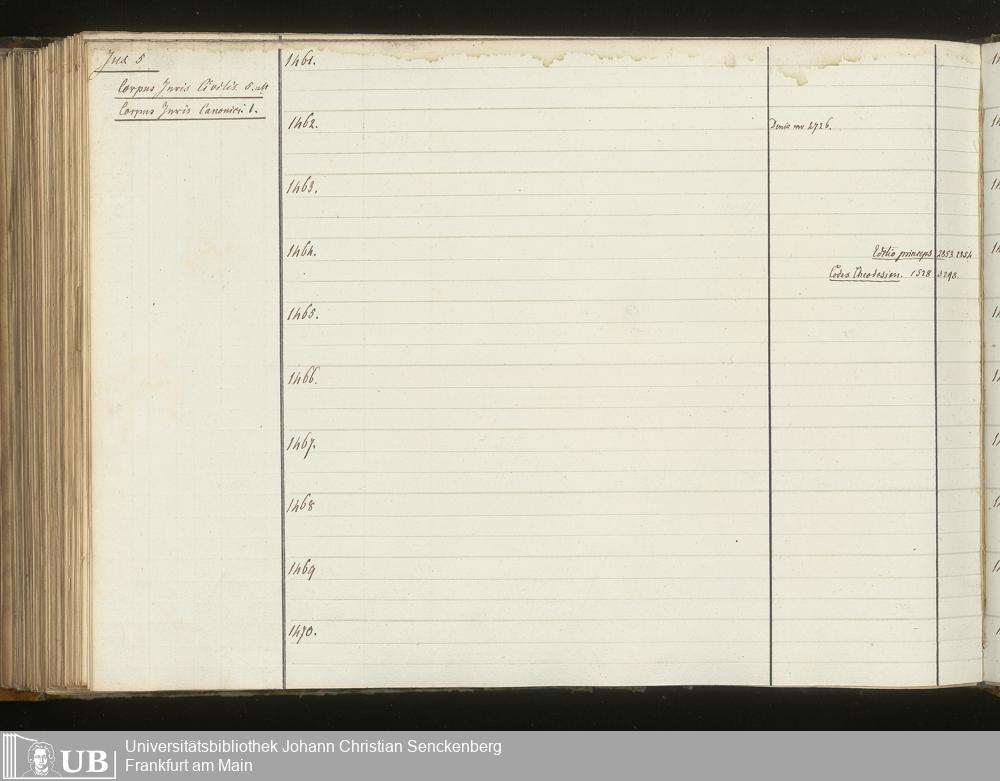 Jus 5
Corpus Juris Civilis. 6.
Corpus Juris Canonici 1.
1461.
1462.
Denis no. 2726.
1463.
1464.
Editio princeps 2853. 2854.
Codex Theodosian. 1528. 3298.
1465.
1466.
1467.
1468
1469
1470.
UB
Universitätsbibliothek Johann Christian Senckenberg
Frankfurt am Main